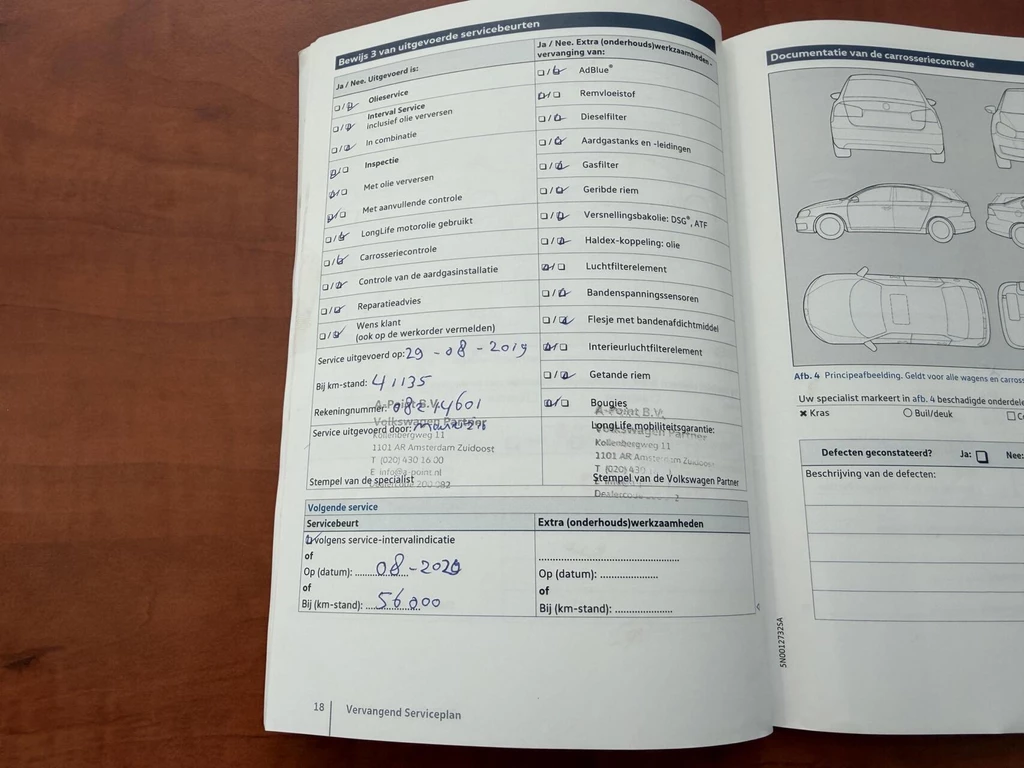 Bewijs 3 van uitgevoerde servicebeurten
Ja / Nee. Uitgevoerd is:
Olieservice
Interval Service
inclusief olie verversen
In combinatie
Inspectie
Met olie verversen
Met aanvullende controle
LongLife motorolie gebruikt
Carrosseriecontrole
Controle van de aardgasinstallatie
Reparatieadvies
Wens klant
(ook op de werkorder vermelden)
Service uitgevoerd op: 29-08-2019
Bij km-stand: 41135
Rekeningnummer:
Service uitgevoerd door:
A-Point B.V.
Volkswagen Partner
Kollenbergweg 11
1101 AR Amsterdam Zuidoost
T (020) 430 16 00
E info@a-point.nl
Stempel van de specialist
Ja / Nee. Extra (onderhouds)werkzaamheden -
vervanging van:
AdBlue®
Remvloeistof
Dieselfilter
Aardgastanks en -leidingen
Gasfilter
Geribde riem
Versnellingsbakolie: DSG®, ATF
Haldex-koppeling: olie
Luchtfilterelement
Bandenspanningssensoren
Flesje met bandenafdichtmiddel
Interieurluchtfilterelement
Getande riem
Bougies
A-Point B.V.
LongLife mobiliteitsgarantie:
Volkswagen Partner
Kollenbergweg 11
1101 AR Amsterdam Zuidoost
T (020) 430
Stempel van de Volkswagen Partner
Dealercode
Volgende service
Servicebeurt
Volgens service-intervalindicatie
of
Op (datum): 08-2020
of
Bij (km-stand): 56000
Extra (onderhouds)werkzaamheden
Op (datum):
of
Bij (km-stand):
18 Vervangend Serviceplan
Documentatie van de carrosseriecontrole
Afb. 4 Principeafbeelding. Geldt voor alle wagens en
Uw specialist markeert in afb. 4 beschadigde
Kras Buil/deuk
Defecten geconstateerd? Ja: Nee:
Beschrijving van de defecten:
5N0012732SA